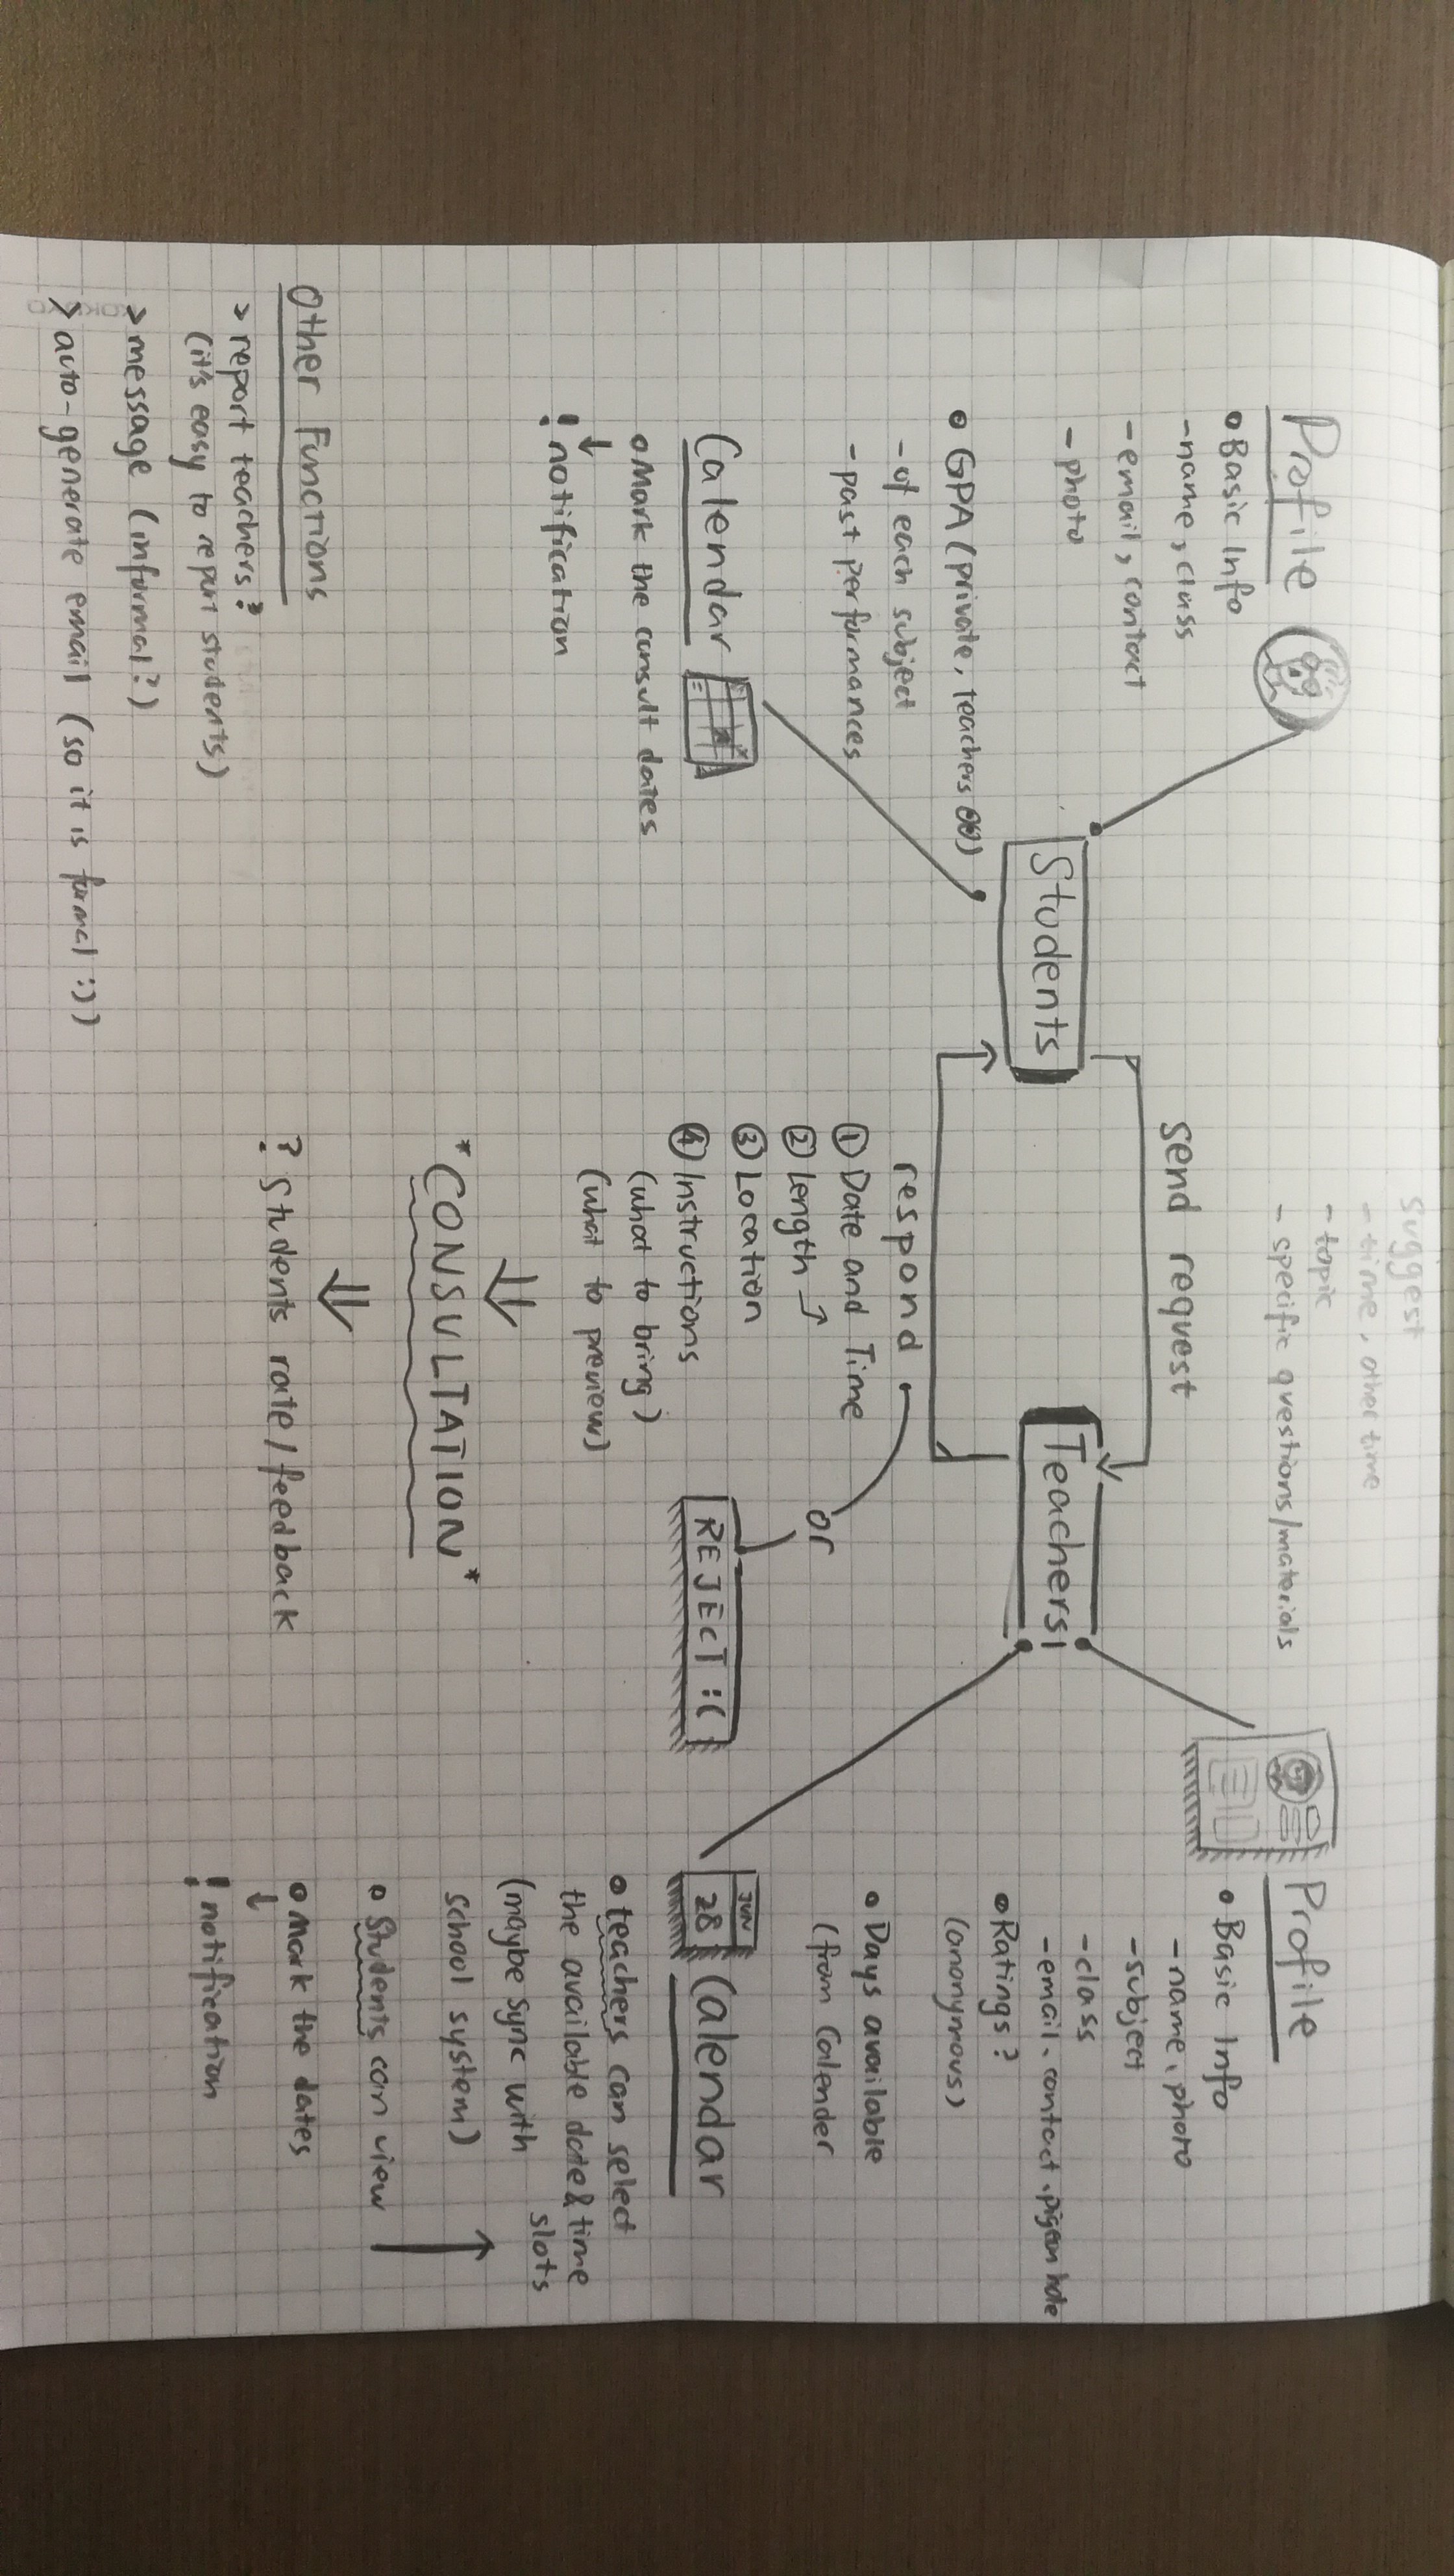 Profile
• Basic Info
- name, class
- email, contact
- photo
• GPA (private, teachers
- of each subject
- past performances
Calendar
• Mark the consult dates
↓
! notification
Other Functions
> report teachers?
(it's easy to report students)
> message (informal?)
> auto-generate email (so it is formal :))
Students
suggest
- time, other time
- topic
- specific questions/materials
send request
Teachers
respond
① Date and Time
② Length →
③ Location
④ Instructions
(what to bring)
(what to preview)
or
REJECT :(
⇓
*CONSULTATION*
⇓
? Students rate/feedback
Profile
• Basic Info
- name, photo
- subject
- class
- email, contact, pigeon hole
• Ratings?
(anonymous)
• Days available
(from Calender
JUN
28
Calendar
• teachers can select
the available date & time
slots
(maybe sync with
school system)
• Students can view
• Mark the dates
↓
! notification